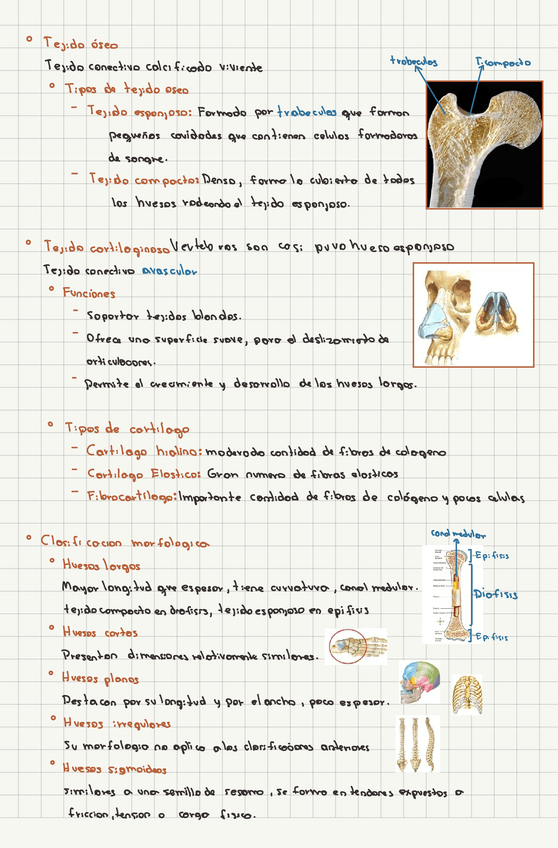 Tejido óseo
Tejido conectivo calcificado viviente
trabeculas
T.compacto
Tipos de tejido oseo
- Tejido esponjoso: Formado por trabeculas que forman
pequeños cavidades que contienen celulas formadoras
de sangre.
- Tejido compacto: Denso, forma la cubierta de todos
los huesos rodeando el tejido esponjoso.
Tejido cartilaginoso Vertebras son casi puro hueso esponjoso
Tejido conectivo avascular
Funciones
- Soportar tejidos blandos.
- Ofrece una superficie suave, para el deslizamiento de
articulaciones.
- Permite el crecimiento y desarrollo de los huesos largos.
Tipos de cartilago
- Cartilago hialino: moderada cantidad de fibras de colageno
- Cartilago Elastico: Gran numero de fibras elasticas
- Fibrocartilago: Importante cantidad de fibras de colágeno y pocas celulas
Clasificacion morfologica
canal medular
Huesos largos
Epifisis
Mayor longitud que espesor, tiene curvatura, canal medular.
Diafisis
tejido compacto en diafisis, tejido esponjoso en epifisis
Huesos cortos
Epifisis
Presentan dimensiones relativamente similares.
Huesos planos
Destacan por su longitud y por el ancho, poco espesor.
Huesos irregulares
Su morfologia no aplica a las clasificaciones anteriores
Huesos sigmoideos
similares a una semilla de sesamo, se forma en tendones expuestos a
friccion, tension o carga fisica.